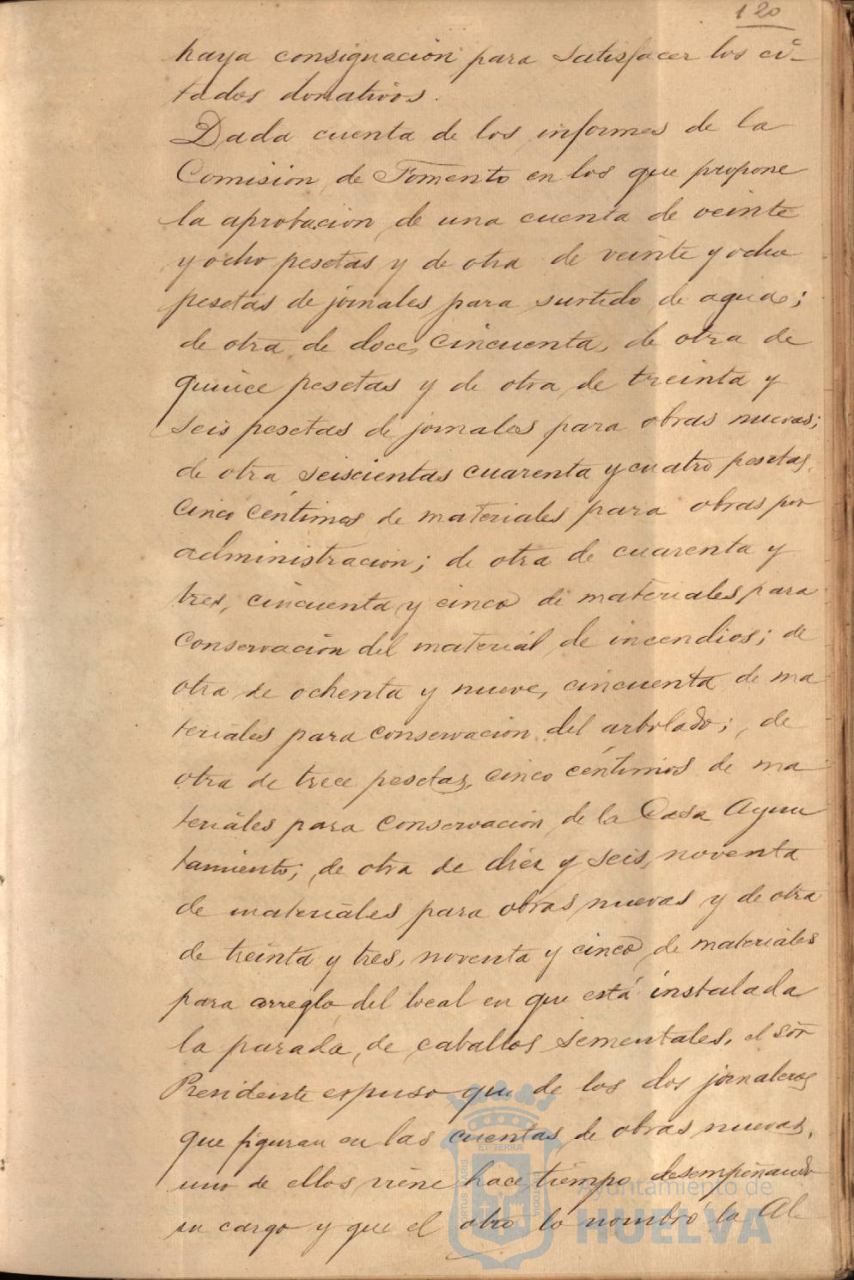 120
haya consignación para satisfacer los ci-
tados donativos.
Dada cuenta de los informes de la
Comisión de Fomento en los que propone
la aprobacion de una cuenta de veinte
y ocho pesetas y de otra de veinte y ocho
pesetas de jornales para surtido de aguas;
de otra de doce, cincuenta, de otra de
quince pesetas y de otra de treinta y
seis pesetas de jornales para obras nuevas;
de otra seiscientas cuarenta y cuatro pesetas,
cinco céntimos de materiales para obras por
administracion; de otra de cuarenta y
tres, cincuenta y cinco de materiales para
conservación del material de incendios; de
otra de ochenta y nueve, cincuenta de ma
teriales para conservacion del arbolado; de
otra de trece pesetas, cinco céntimos de ma
teriales para conservación de la Casa Ayun
tamiento; de otra de diez y seis, noventa
de materiales para obras nuevas y de otra
de treinta y tres, noventa y cinco, de materiales
para arreglo del local en que está instalada
la parada de caballos sementales, el Sõr
Presidente expuso que de los dos jornaleros
que figuran en las cuentas de obras nuevas,
uno de ellos viene hace tiempo desempeñando
su cargo y que el otro lo nombro la Al-
Ayuntamiento de
HUELVA